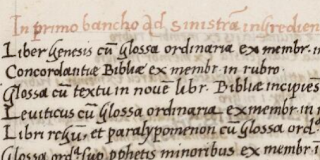 In primo bancho ad sinistrã ingredien
Liber genesis cũ glossa ordinaria ex membr. in
Concordantiæ Bibliæ ex membr. in rubro
Glossa cũ textu in nouẽ libr. Bibliæ incipies
Leuiticus cũ glossa ordinaria ex membr. in n
Libri regũ, et paralypomenon cũ glossa ord.
Glossa ord. sup pphetis minoribus ex membr. i